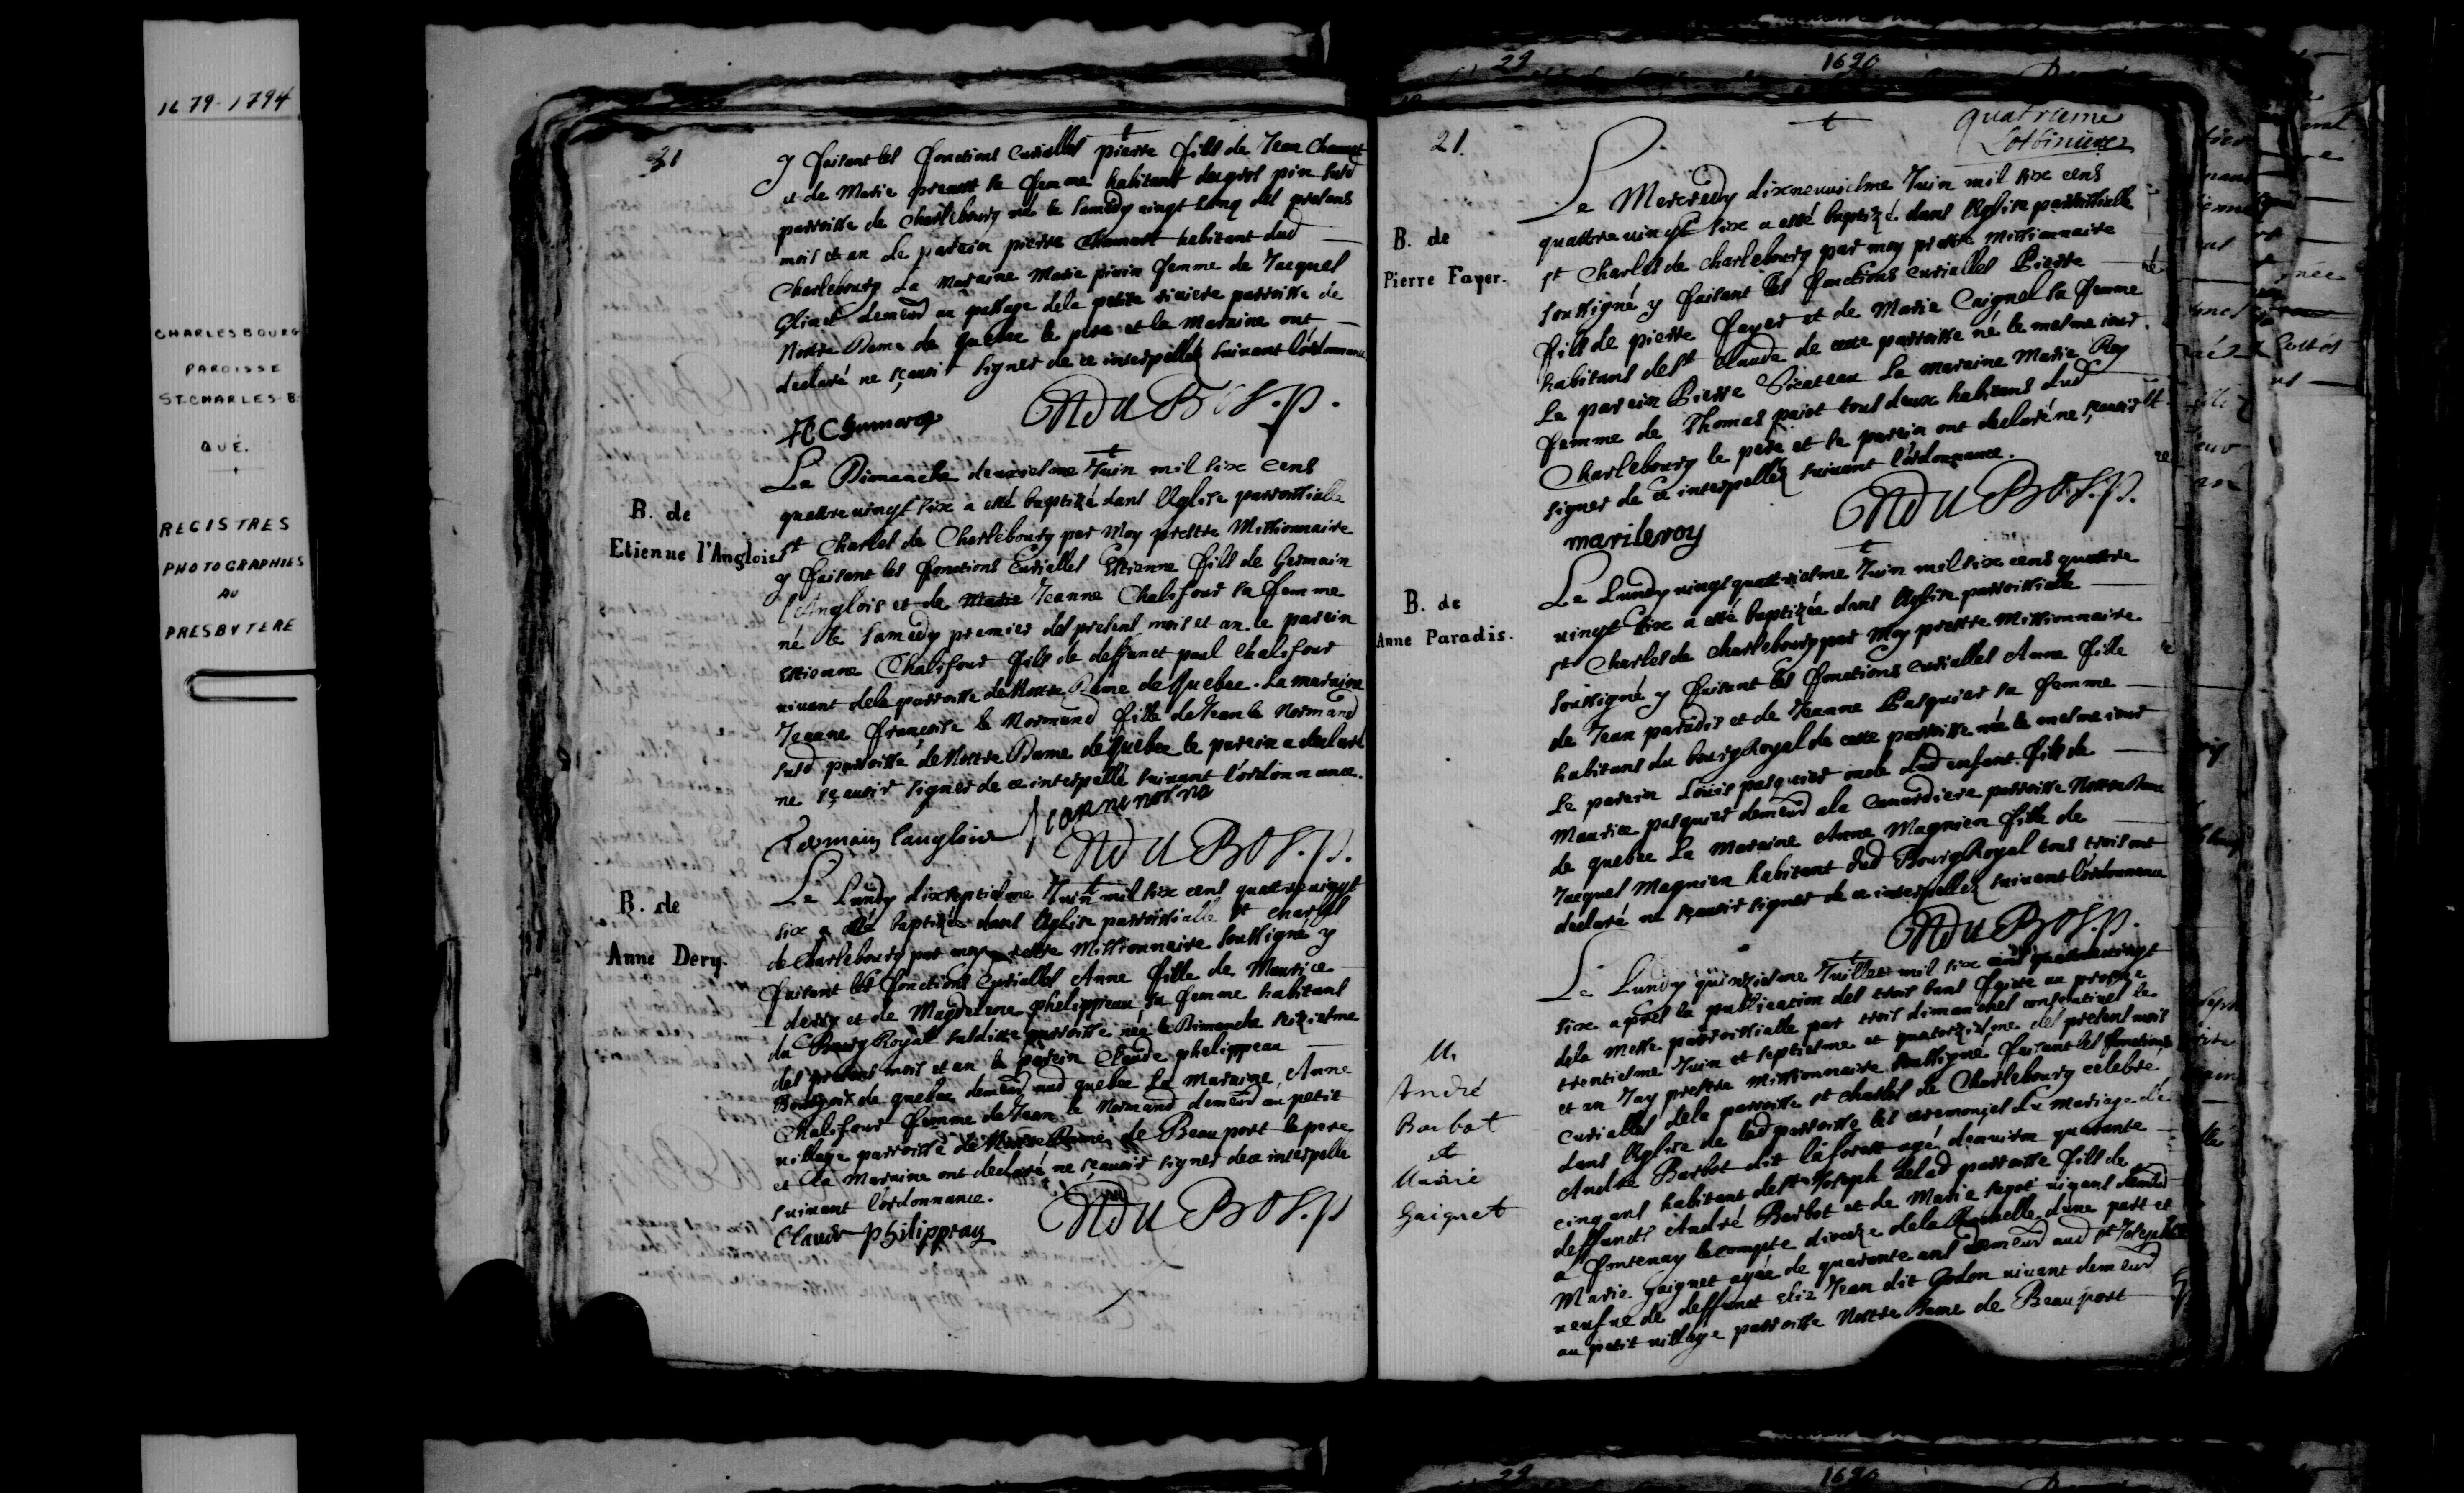 1679-1794
CHARLESBOURG
PAROISSE
ST-CHARLES-B.
QUÉ.
REGISTRES
PHOTOGRAPHIES
AU
PRESBYTERE
21
y faisant les fonctions curialles pierre fils de Jean Chamart
et de Marie sa femme habitant du gros pin susd
parroisse de Charlebourg né le samedy vingt cinq des presens
mois et an le parein pierre Chamart habitant dud
Charlebourg La Maraine Marie pivin femme de Jacques
Glinel demeurd au passage dela petite riviere parroisse de
Nostre Dame de Quebec le pere et la Maraine ont
declaré ne sçavoir signer de ce interpellez suivant l'ordonnance
N du Bos. p.
B. de
Etienne l'Anglois
Le Dimanche deuxiesme Juin mil six cens
quattre vingt six a esté baptizé dans l'Eglise parroissialle
st Charles de Charlebourg par Moy prestre Missionnaire
y faisant les fonctions curialles Estienne fils de Germain
l'Anglois et de Marie Jeanne Chalifour sa femme
né le samedy premier des present mois et an le parein
Estienne Chalifour fils de deffunct paul Chalifour
vivant dela parroisse de Nostre Dame de Quebec. La maraine
Jeanne françoise le Normand fille de Jean le Normand
susd parroisse de Nostre Dame de Quebec le parein a declaré
ne sçavoir signer de ce interpellé suivant l'ordonnance.
Germain langlois
N du Bos. p.
B. de
Anne Dery.
Le Lundy dixseptiesme Juin mil six cens quattre vingt
six a esté baptizée dans l'Eglise parroissialle st Charles
de Charlebourg par moy prestre Missionnaire soussigné y
faisant les fonctions curialles Anne fille de Maurice
dery et de Magdelene phelippeau sa femme habitans
du Bourg Royal susditte parroisse née le Dimanche seiziesme
des presens mois et an le parein Claude phelippeau
Bourgois de quebec demeurd aud quebec La Maraine, Anne
Chalifour femme de Jean le Normand demeurd au petit
village parroisse de Nostre Dame de Beauport le pere
et la Maraine ont declaré ne sçavoir signer de ce interpelle
suivant l'ordonnance.
Claude philippeau
N du Bos. p
29 1690
21.
quatrieme
Lotbiniere
B. de
Pierre Fayer.
Le Mercredy dixneuviesme Juin mil six cens
quattre vingt six a esté baptizé dans l'Eglise parroissialle
st Charles de charlebourg par moy prestre Missionnaire
soussigné y faisant les fonctions curialles Pierre
fils de pierre fayer et de Marie Caignel sa femme
habitans de st Claude de cette parroisse né le mesme iour.
Le parein Pierre La maraine Marie Roy
femme de Thomas tous deux habitans dud
Charlebourg le pere et le parein ont declaré ne sçavoir
signer de ce interpellez suivant l'ordonnance.
marileroy
N du Bos. p.
B. de
Anne Paradis.
Le Lundy vingt quattriesme Juin mil six cens quattre
vingt six a esté baptizée dans l'Eglise parroissialle
st Charles de charlebourg par Moy prestre Missionnaire
soussigné y faisant les fonctions curialles Anne fille
de Jean paradis et de Jeanne Pasquier sa femme
habitans du bourg Royal de cette parroisse née le mesme iour
Le parein Louis pasquier oncle dud enfant fils de
Maurice pasquier demeurd a la Canardiere parroisse Nostre Dame
de quebec La Maraine Anne Magnien fille de
Jacques Magnien habitant dud Bourg Royal tous trois ont
declaré ne sçavoir signer de ce interpellez suivant l'ordonnance
N du Bos. p.
M.
André
Barbot
et
Marie
Gaignet
Le Lundy quinziesme Juillet mil six cens quattre vingt
six apres la publication des trois bans faite au prosne
dela Messe parroissialle par trois dimanches consecutives le
trentiesme Juin et septiesme et quatorziesme des present mois
et an Jay prestre missionnaire soussigné faisant les fonctions
curialles dela parroisse st charles de Charlebourg celebré
dans l'Eglise de lad parroisse les ceremonies du Mariage de
André Barbot dit laforest agé denviron quarante
cinq ans habitant de st Joseph de lad parroisse fils de
deffuncts André Barbot et de Marie vivans demeurd
a fontenay le compte diocese dela Rochelle dune part et
Marie gaignet agée de quarante ans demeurd aud st Joseph
veufve de deffunct Elie Jean dit Godon vivant demeurd
au petit village parroisse Nostre Dame de Beauport
29 1690